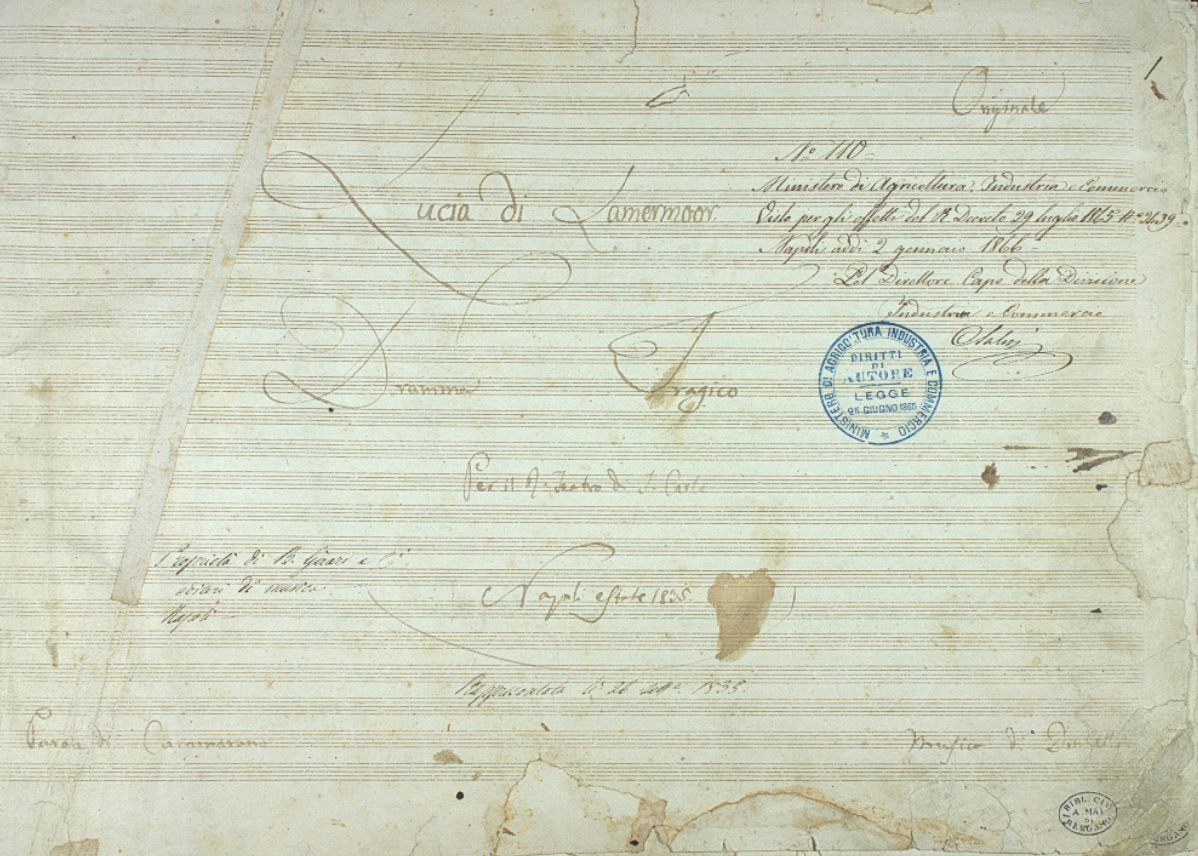 Originale
Nº 110 –
Ministero di Agricoltura, Industria e Commercio
Visto per gli effetti del R Decreto 29 luglio 1865 Nº 2439 –
Napoli addì 2 gennaio 1866 –
Pel Direttore Capo della Divisione
Industria e Commercio
Lucia di Lamermoor.
Dramma Tragico
MINISTERO DI AGRICOLTURA INDUSTRIA E COMMERCIO
DIRITTI
DI
AUTORE
LEGGE
25 GIUGNO 1865
Per il Rº Teatro di S. Carlo
Proprietà di B. Girard e Cⁱ
di musica
Napoli
Napoli estate 1835.
Rappresentata li 26 1835.
Parole di Cammarano
Musica di Donizetti
BIBL. CIV.
A. MAI
DI
BERGAMO
BERGAMO